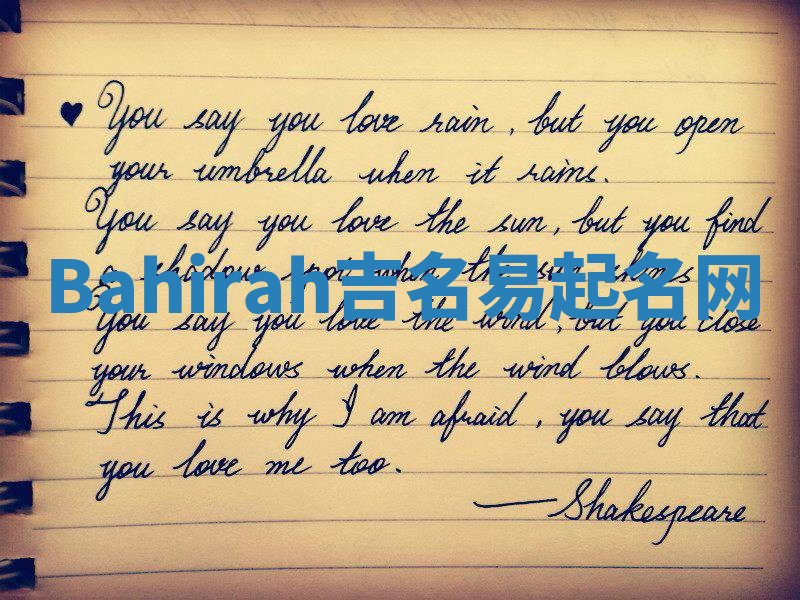 ♥ You say you love rain, but you open
your umbrella when it rains.
You say you love the sun, but you find
a shadow spot when the sun shines
Bahirah吉名易起名网
You say you love the wind, but you close
your windows when the wind blows.
This is why I am afraid, you say that
you love me too.
—Shakespeare